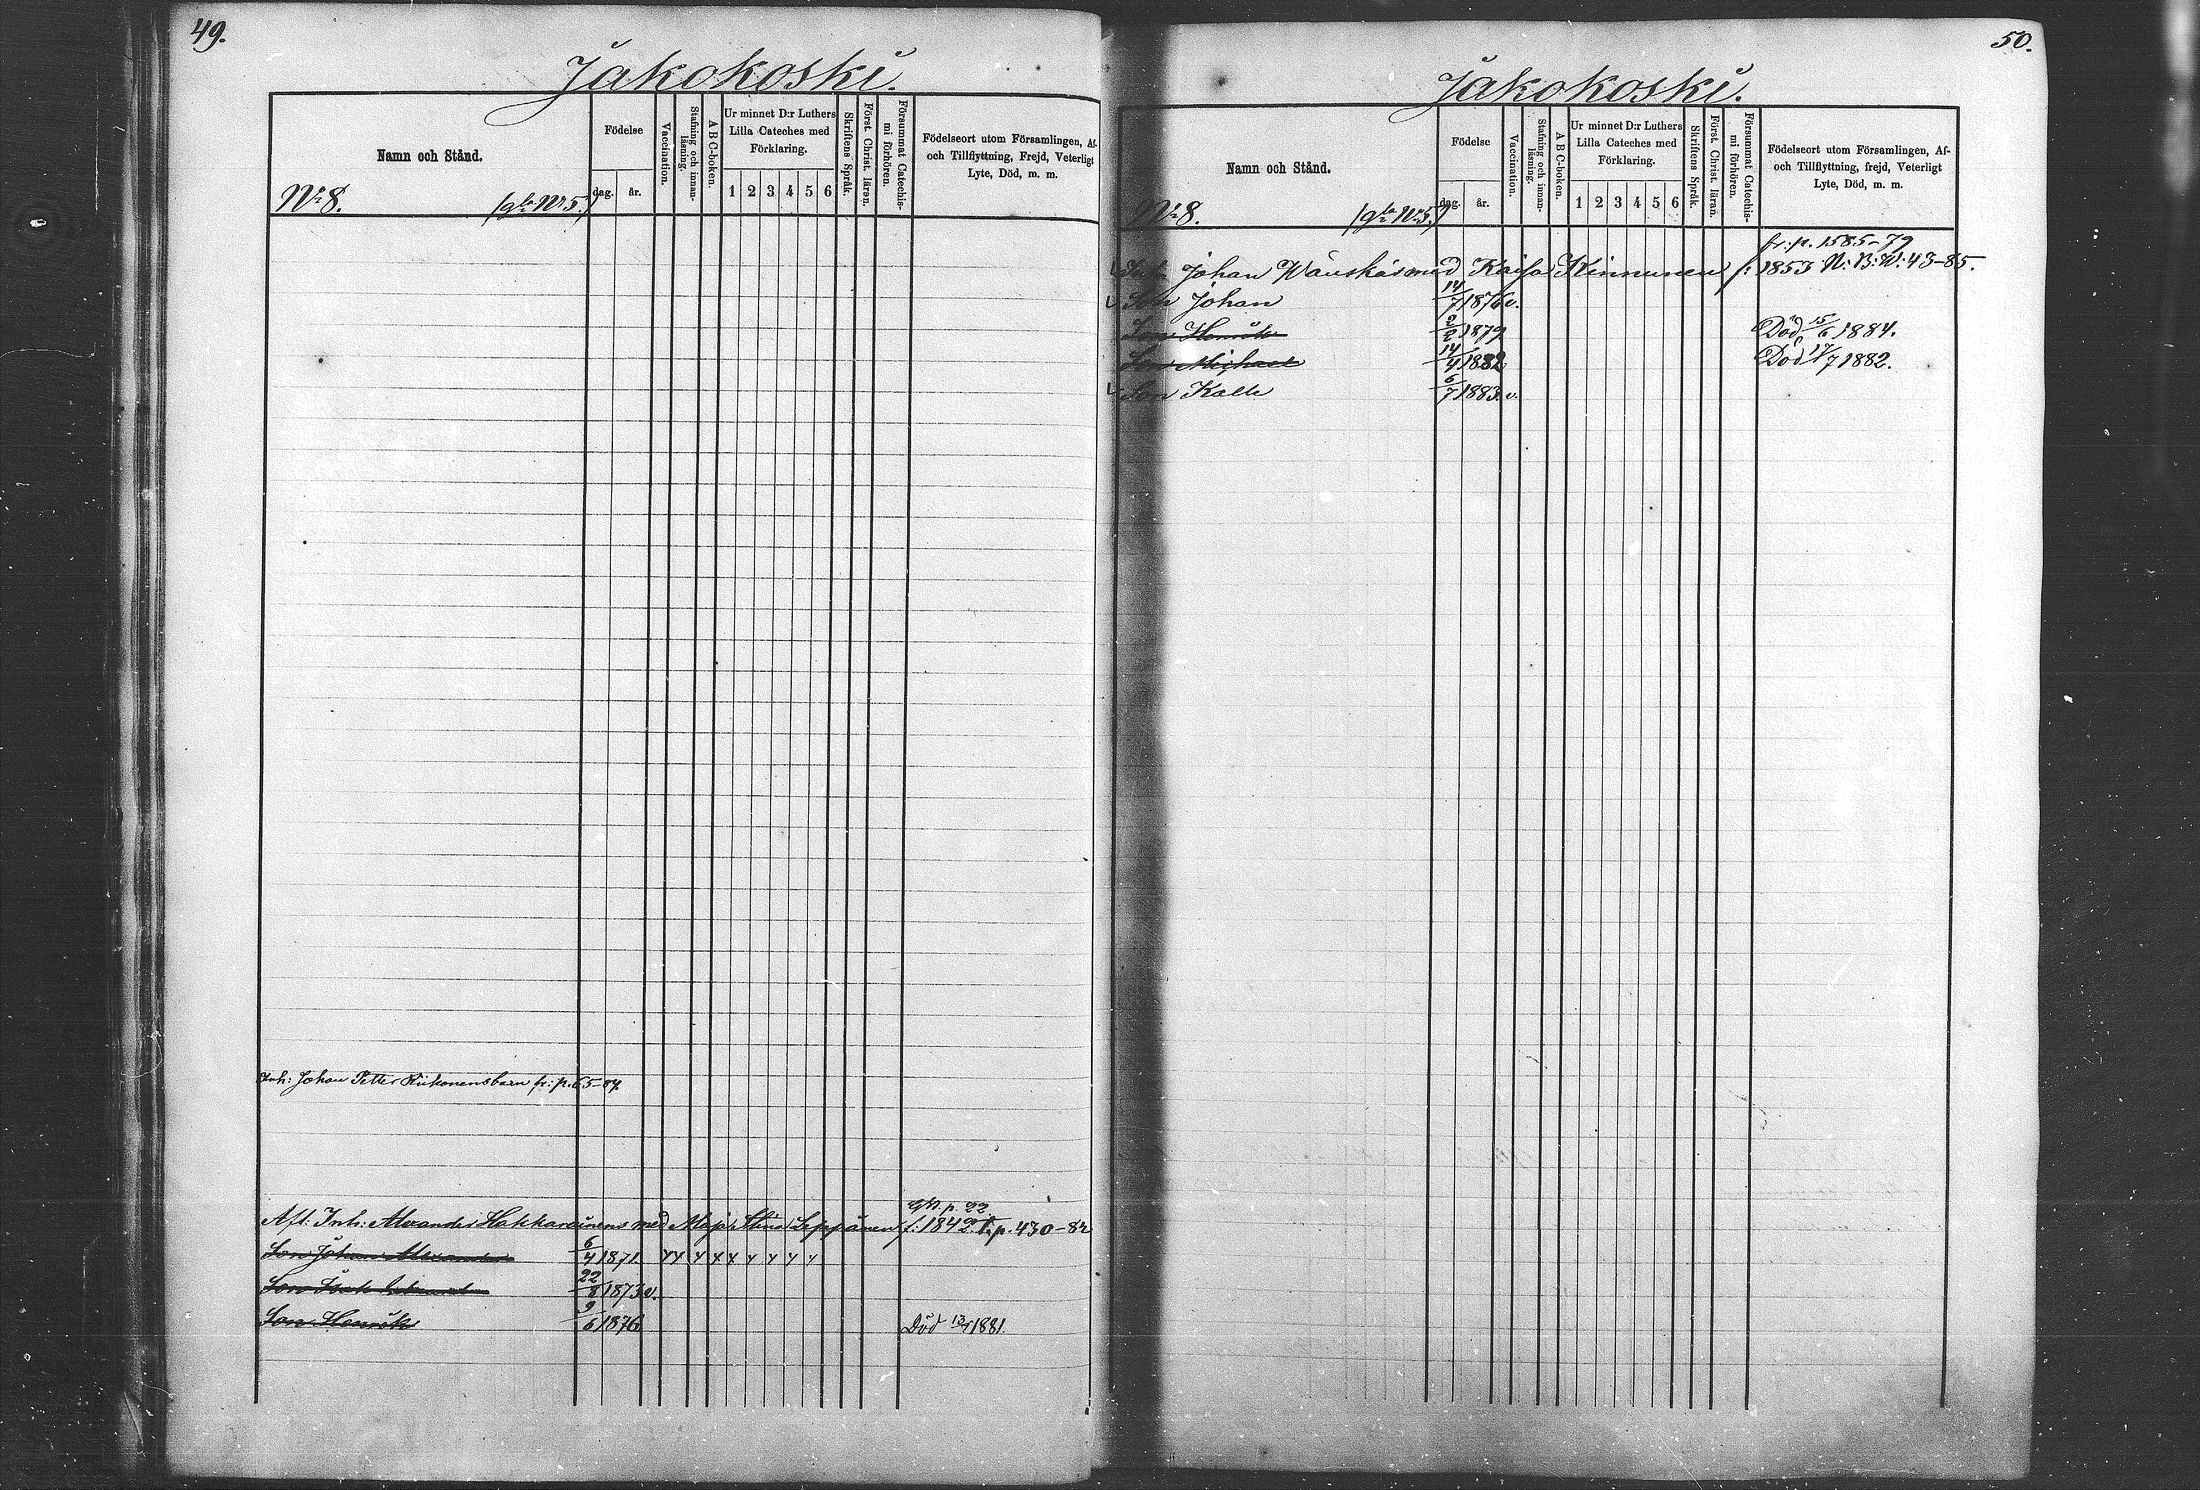 49.
Jakokoski.
Namn och Stånd.
Födelse
dag.
år.
Vaccination.
Stafning och innan-
läsning.
A B C-boken.
Ur minnet D:r Luthers
Lilla Cateches med
Förklaring.
1 2 3 4 5 6
Skriftens Språk.
Först. Christ. läran.
Försummat Catechis-
mi förhören.
Födelseort utom Församlingen, Af-
och Tillflyttning, Frejd, Veterligt
Lyte, Död, m. m.
№ 8. (gla № 5.)
Inh: Johan Petter Kukonens barn fr: p. 65-87.
Gift. p. 22
Afl: Inh: Alexander Hakkarainens med Maja Stina Seppänen f: 1842 p. 430-82
Son Johan Alexander 6/4 1871
Son Isak 22/8 1873 v.
Son Henrik 9/6 1876 Död 1881.
50.
Jakokoski.
Namn och Stånd.
Födelse
dag.
år.
Vaccination.
Stafning och innan-
läsning.
A B C-boken.
Ur minnet D:r Luthers
Lilla Cateches med
Förklaring.
1 2 3 4 5 6
Skriftens Språk.
Först. Christ. läran.
Försummat Catechis-
mi förhören.
Födelseort utom Församlingen, Af-
och Tillflyttning, frejd, Veterligt
Lyte, Död, m. m.
№ 8. (gla № 5)
fr: p. 1585-79
Inh: Johan Wänskäs med Kaisa Kinnunen f: 1853 N: B: W: 43-85.
Son Johan 14/7 1876 v.
Son Henrik 2/2 1879 Död 15/6 1884.
Son Michael 14/4 1882 Död 17/7 1882.
Son Kalle 6/7 1883 v.